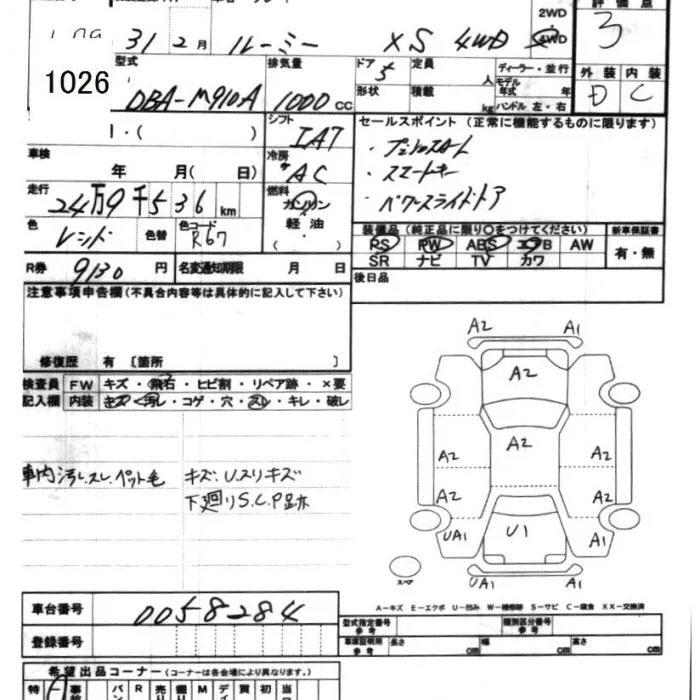 評価点
31 2月 ルーミー XS 4WD 2WD 4WD 3
1026
型式 排気量 ドア 定員 ディーラー・並行 外装 内装
DBA-M910A 1000 CC 5 人 モデル年式 年 D C
形状 積載 kg ハンドル 左・右
( ) シフト IAT セールスポイント (正常に機能するものに限ります)
車検 冷房 AC ・プッシュスタート
年 月( 日) ・スマートキー
走行 燃料 ガソリン ・パワースライドドア
24万9千536km 軽油
色 色替 色コード ( )
レッド R67
装備品 (純正品に限り○をつけてください) 新車保証書
PS PW ABS エアB AW 有・無
SR ナビ TV カワ
R券 9130 円 名変通知期限 月 日 後日品
注意事項申告欄(不具合内容等は具体的に記入して下さい)
修復歴 有 [箇所 ]
検査員 FW キズ・飛石・ヒビ割・リペア跡・×要
記入欄 内装 キズ・汚れ・コゲ・穴・スレ・キレ・破レ
車内汚レ.スレ.ペット毛 キズ.U.スリキズ
下廻りS.C.P跡
A2 A1
A2
A2
A2 A2
A2 A2
UA1 U1 A1
スペア UA1 A1
A-キズ E-エクボ U-凹み W-補修跡 S-サビ C-腐食 XX-交換済
車台番号 0058284
型式指定番号 参考 類別区分番号 参考
車庫証明用 参考 長さ cm 幅 cm 高さ cm
登録番号
希望出品コーナー (コーナーは各会場により異なります。)